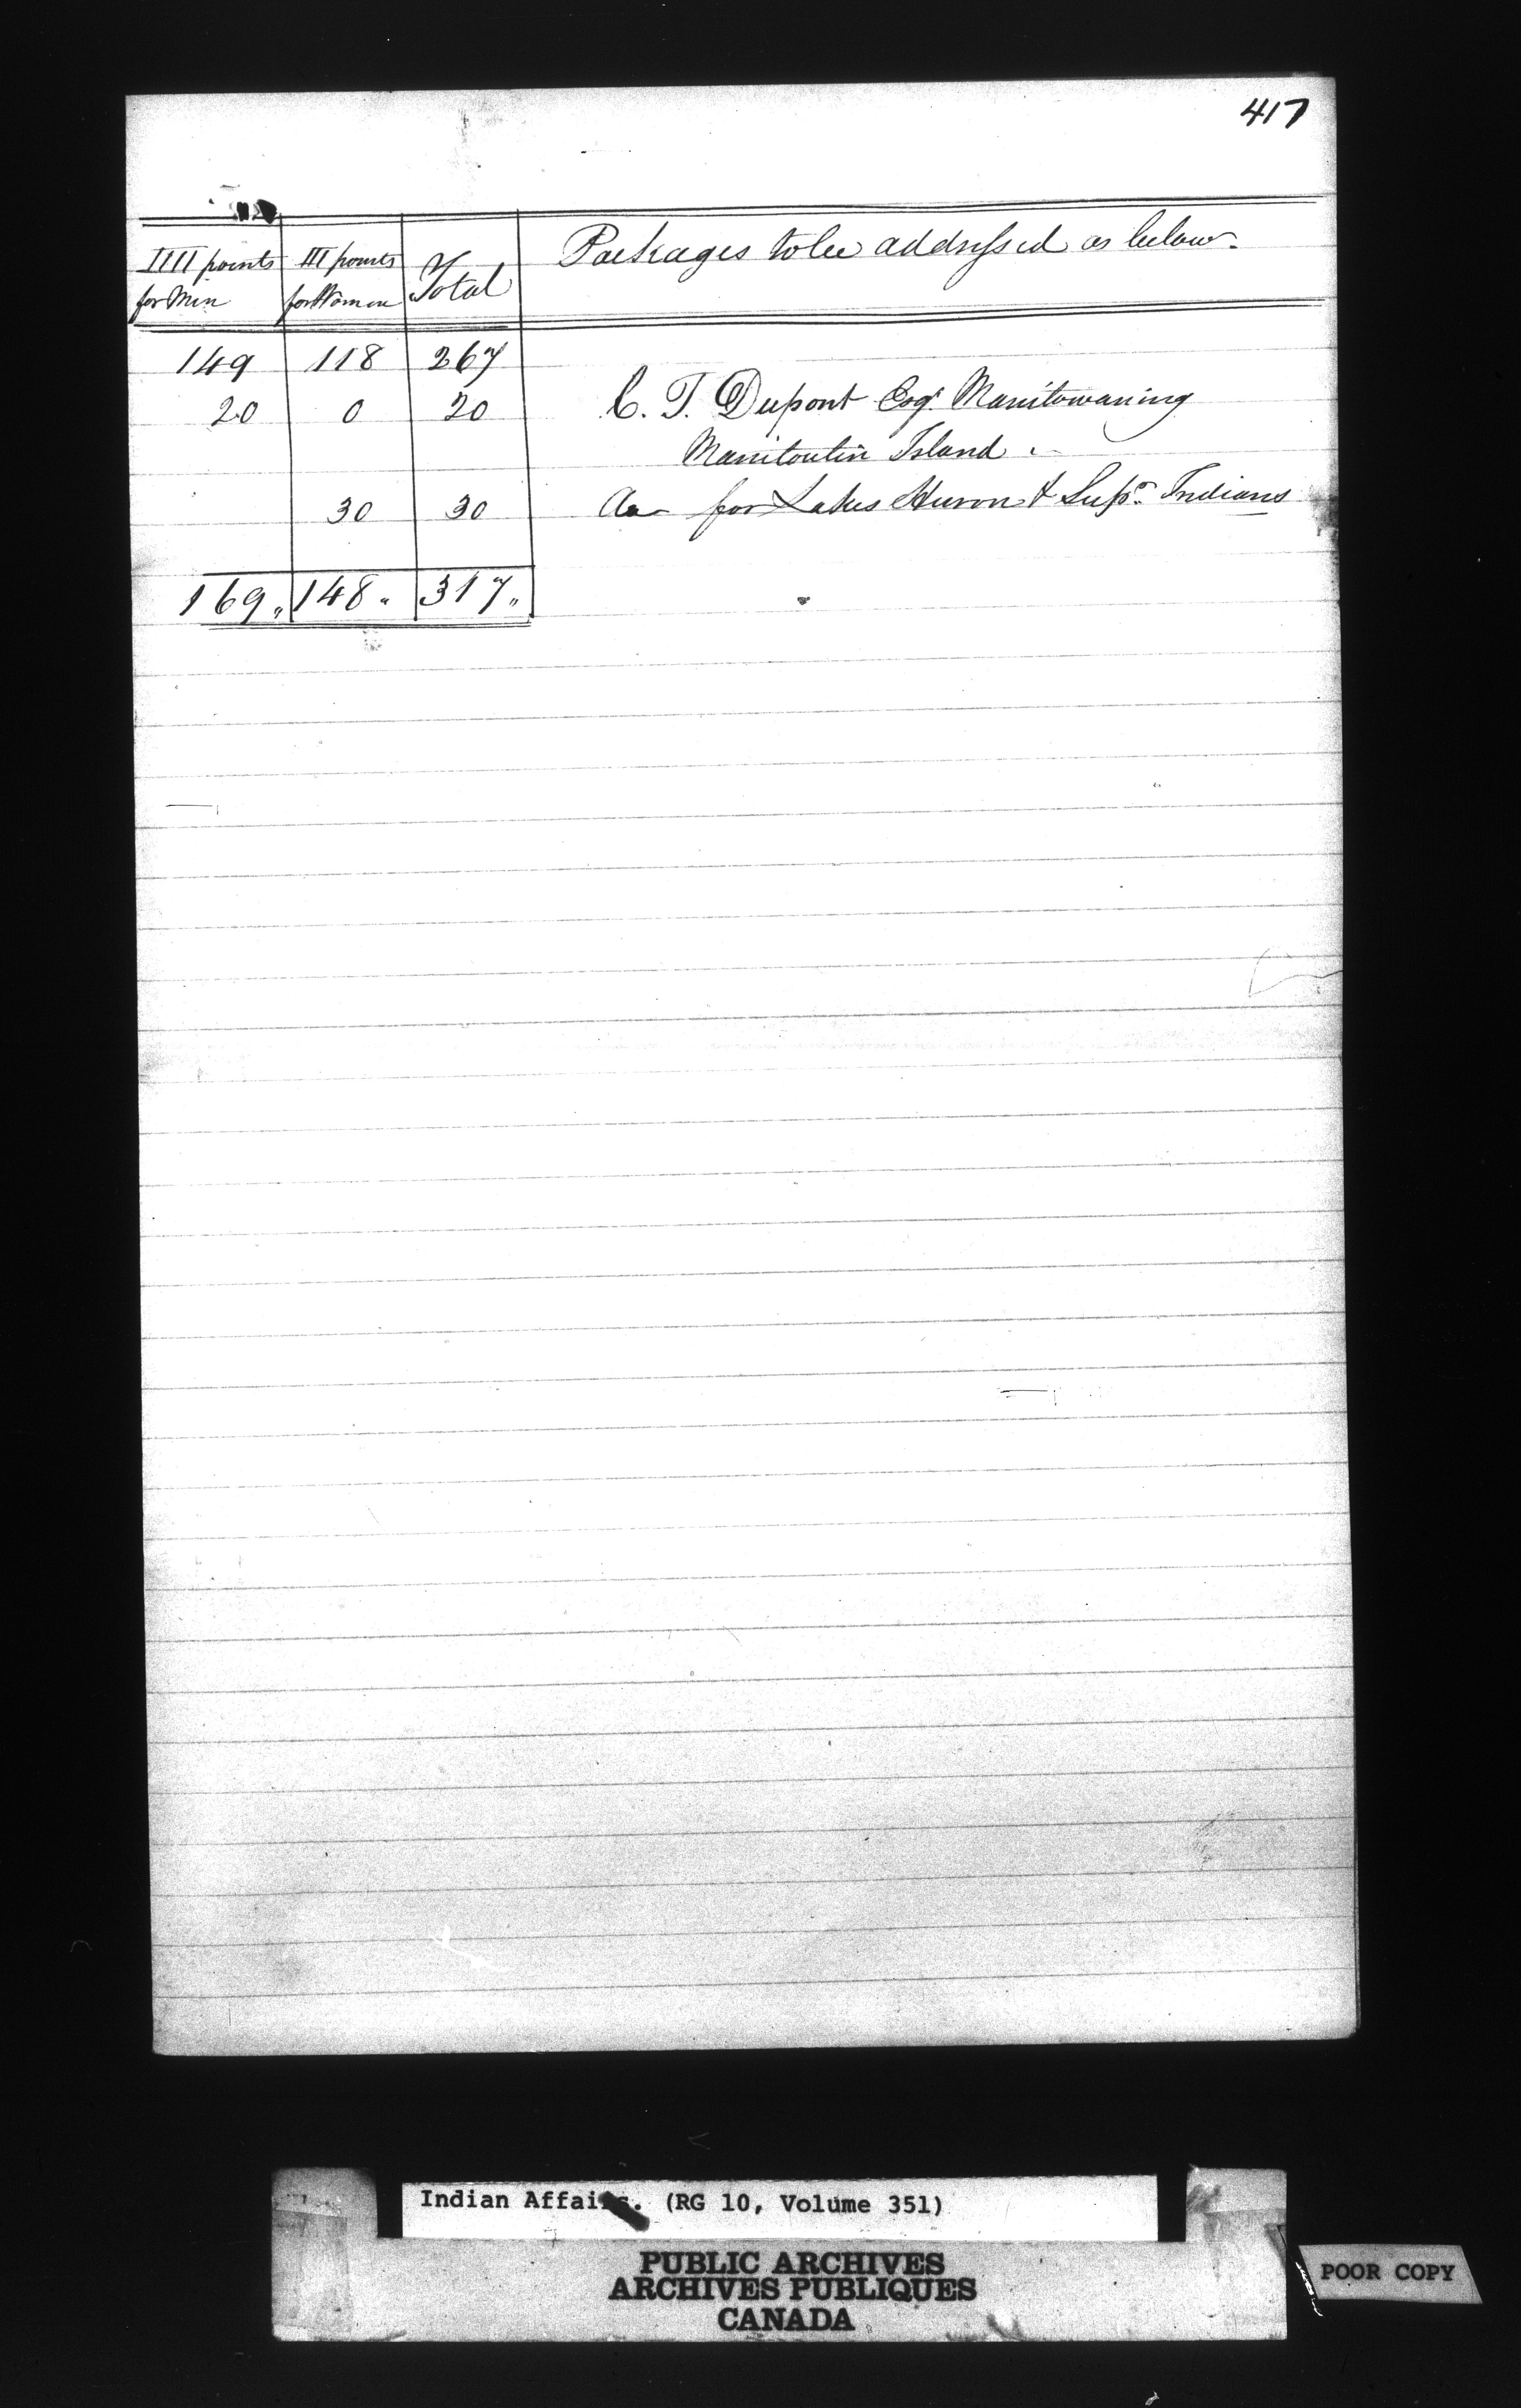 417
IIII points for Men | III points for Women | Total | Packages to be addressed as below.
149 | 118 | 267
20 | 0 | 20 | C. T. Dupont Esqr. Manitowaning
Manitoulin Island
30 | 30 | for Lakes Huron & Supr. Indians
169 " | 148 " | 317 "
Indian Affairs. (RG 10, Volume 351)
PUBLIC ARCHIVES
ARCHIVES PUBLIQUES
CANADA
POOR COPY